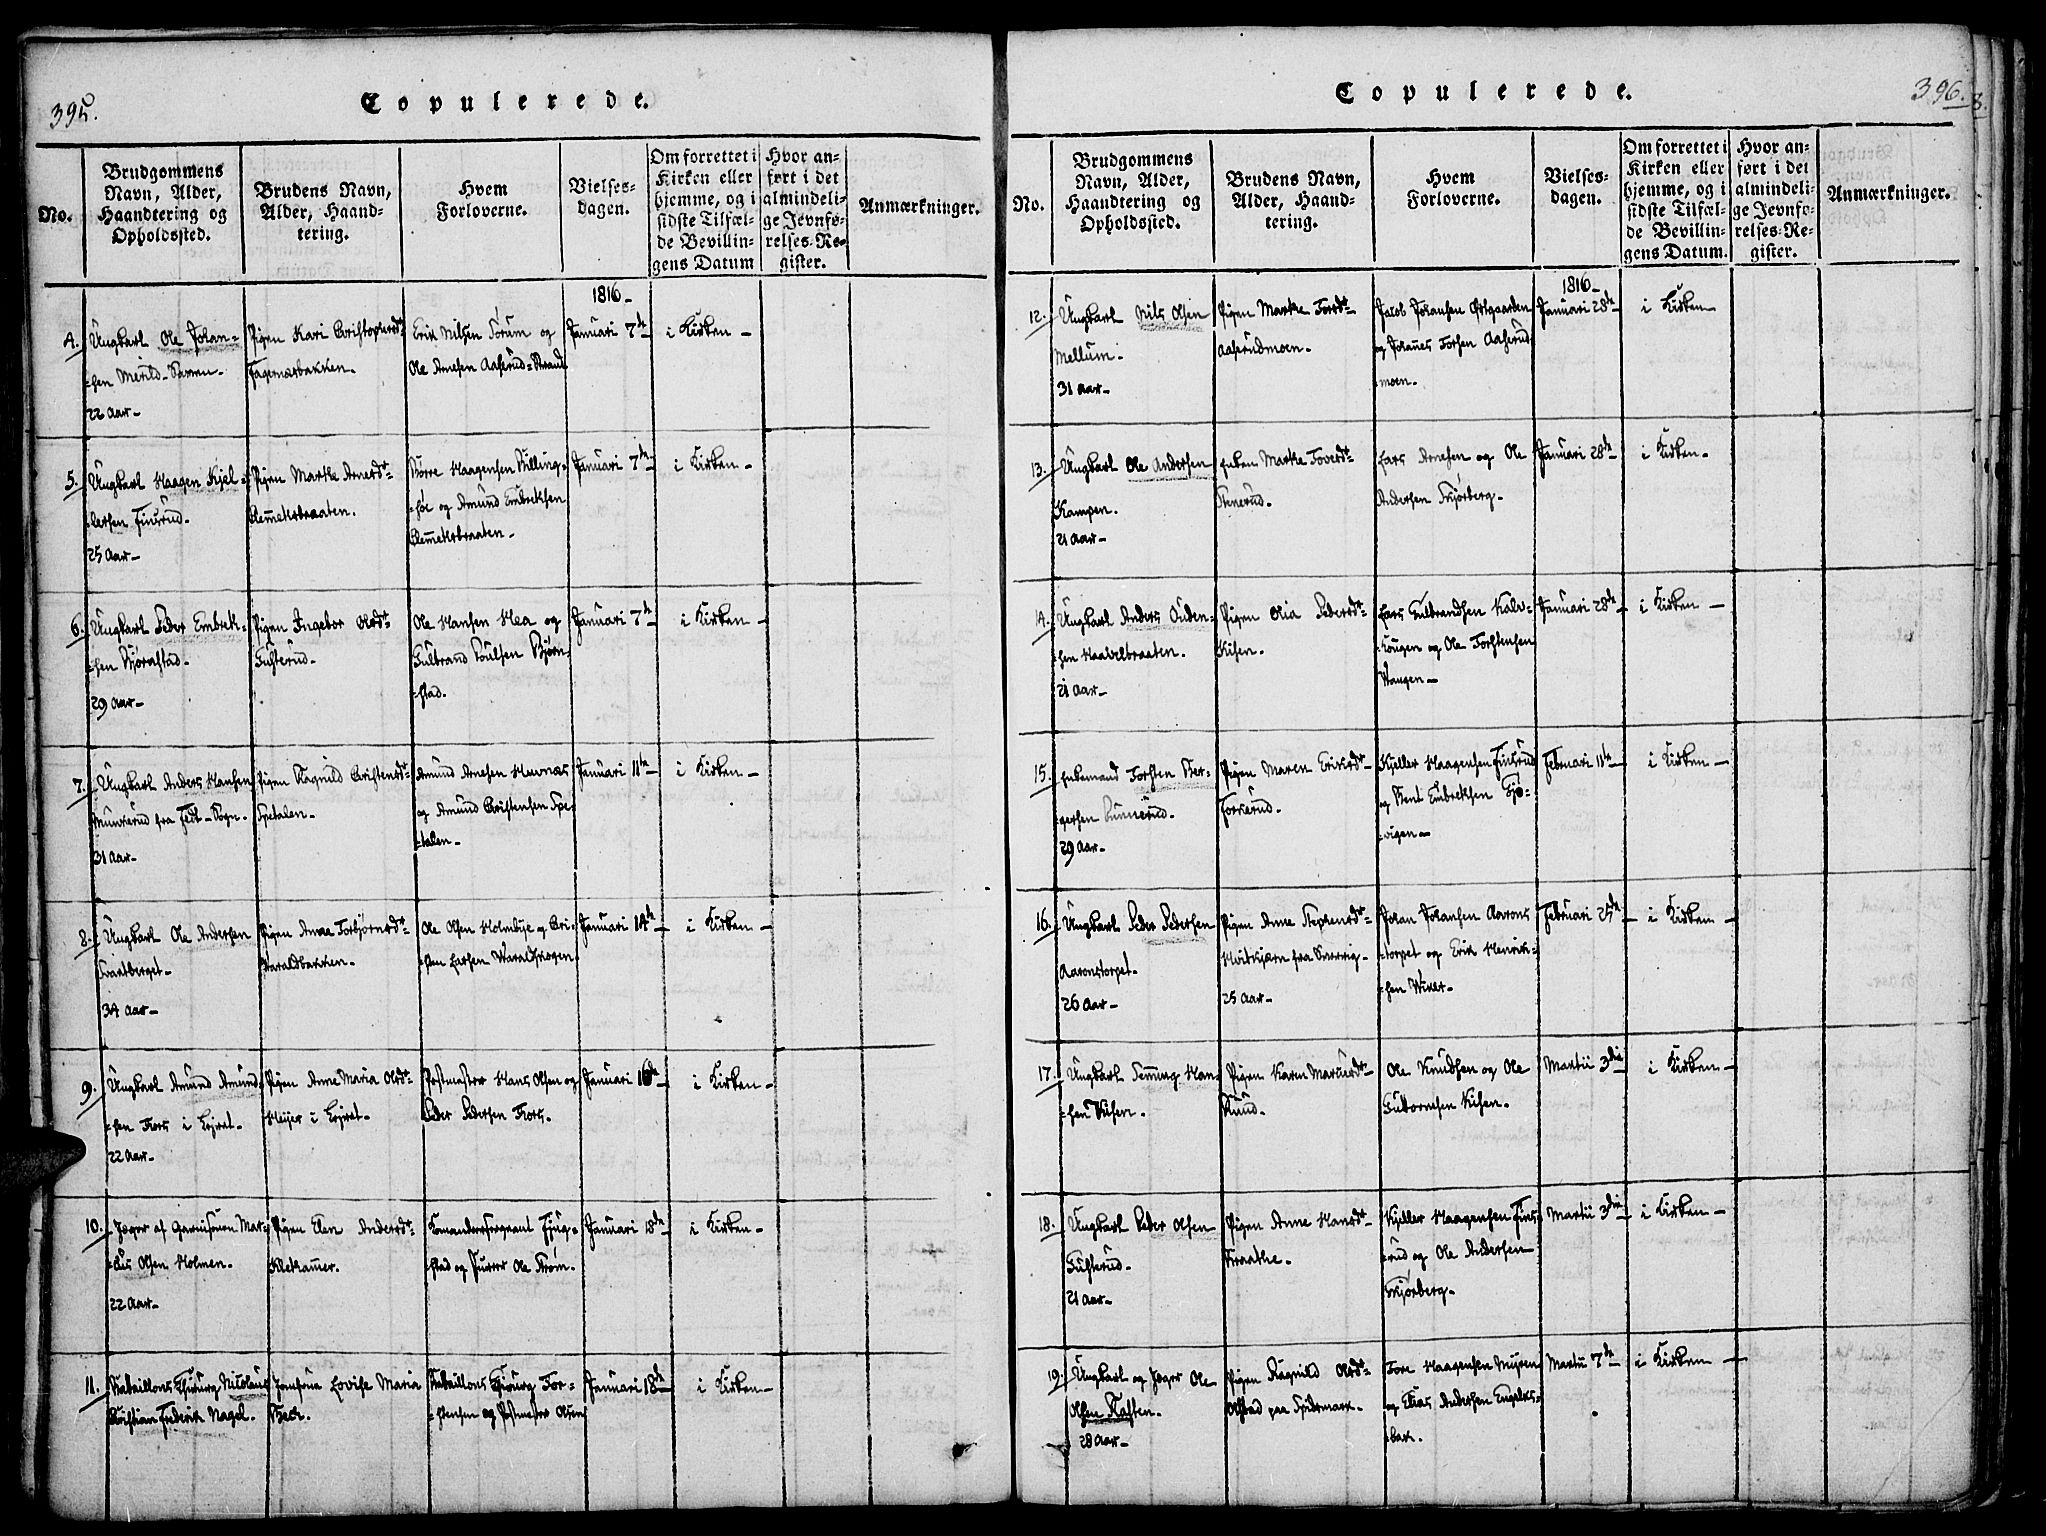 395.
Copulerede.
No.
Brudgommens
Navn, Alder,
Haandtering og
Opholdssted.
Brudens Navn,
Alder, Haand-
tering.
Hvem
Forloverne.
Vielses-
dagen.
Om forrettet i
Kirken eller
hjemme, og i
sidste Tilfæl-
de Bevillin-
gens Datum
Hvor an-
ført i det
almindeli-
ge Jevnfø-
relses-Re-
gister.
Anmærkninger.
1816-
4.
Ungkarl Ole Johan-
-sen
22 Aar-
Pigen Kari Christophersdt
Fagernæsbakken.
Erik Nilsen Sorum og
Ole Arnesen Aaserud-Strand
Januari 7de
i Kirken -
5.
Ungkarl Haagen Kjel-
-lersen Finsrud.
25 Aar-
Pigen Marthe Arnesdt
Clemetsbraaten.
Haagensen Killing-
og Amund Embreksen
Clemetsbraaten-
Januari 7de
i Kirken -
6.
Ungkarl Peder Embrek-
-sen Bjørnstad-
29 Aar-
Pigen Ingebor Olsdt
Gusterud-
Ole Hansen Mea og
Gulbrand Poulsen Bjørn-
-stad.
Januari 7de
i Kirken -
7.
Ungkarl Anders Hansen
fra Feet-Sogn.
31 Aar-
Pigen Ragnild Christensdt
Spetalen-
Amund Arnesen
og Amund Christensen Spe-
-talen-
Januari 11te
i Kirken -
8.
Ungkarl Ole Andersen
Svartberget-
34 Aar-
Pigen Anne Torbjørnsdt
Varaldbakken-
Ole Olsen Holmbye og Chri-
-sten Larsen Varaldskogen-
Januari 14de
i Kirken -
9.
Ungkarl Amund Amund-
-sen Fors i Leiret-
22 Aar-
Pigen Anne Maria Olsdt
Meijer i Leiret-
Postmester Hans Olsen og
Peder Pedersen Fors.
Januari 16de
i Kirken -
10.
Jæger af Garnisonen Mar-
-kus Olsen Holmen.
22 Aar-
Pigen Elen Andersdt
Klekamer.
Comandersergeant Fjug-
-stad og Furer Ole Strøm.
Januari 18de
i Kirken -
11.
Batallions Chirurg Nicolaus
Christian Frederik Nagel.
Jomfrue Lovise Maria
Bech.
Batallions Chirurg Tor-
-stensen og Postmester Olsen
Januari 18de
i Kirken -
Copulerede.
396.
8.
No.
Brudgommens
Navn, Alder,
Haandtering og
Opholdssted.
Brudens Navn,
Alder, Haand-
tering.
Hvem
Forloverne.
Vielses-
dagen.
Om forrettet i
Kirken eller
hjemme, og i
sidste Tilfæl-
de Bevillin-
gens Datum.
Hvor an-
ført i det
almindeli-
ge Jevnfø-
relses-Re-
gister.
Anmærkninger.
1816-
12.
Ungkarl Nils Olsen
Mellum-
31 Aar-
Pigen Marthe Toresdt
Aaserudmoen.
Jacob Johansen Østgaarden
og Johanes Torsen Aaserud-
-moen.
Januari 28de
i Kirken
13.
Ungkarl Ole Andersen
Kampen.
21 Aar-
Enken Marthe Toversdt
Stenerud.
Lars Arnesen og Ole
Andersen Skjørberg-
Januari 28de
i Kirken-
14.
Ungkarl Anders Ouden-
-sen Haavelbraaten.
21 Aar-
Pigen Olia Pedersdt
Kisen.
Lars Gulbrandsen Kalv-
-kougen og Ole Torstensen
Haugen-
Januari 28de
i Kirken -
15.
Enkemand Torsten Bør-
-gersen Lunnerud.
29 Aar-
Pigen Maren Eriksdt
Torkerud.
Kjeller Haagensen Finsrud
og Bent Embreksen Gjø-
-vigen-
Februari 11te
i Kirken -
16.
Ungkarl Peder Pedersen
Aaronstorpet-
26 Aar-
Pigen Anne Stephensdt
Hvitkjærn fra Sverrig-
25 Aar-
Johan Johansen Aarons-
-torpet og Erik Henrik-
-sen Viker-
Februari 25de
i Kirken -
17.
Ungkarl Semmng Han-
-sen Kisen.
Pigen Karen
Ruud.
Ole Knudsen og Ole
Guttormsen Kisen.
Martii 3die
i Kirken -
18.
Ungkarl Peder Olsen
Gusterud.
21 Aar-
Pigen Anne Hansdt
Braathe.
Kjeller Haagensen Fins-
-rud og Ole Andersen
Skjørberg-
Martii 3die
i Kirken -
19.
Ungkarl og Jæger Ole
Olsen Kaften.
28 Aar-
Pigen Ragnild Olsdt
Olstad paa Spidsmark.
Tore Haagensen Myren
og Elias Andersen Engeløs-
-bak.
Martii 7de
i Kirken -